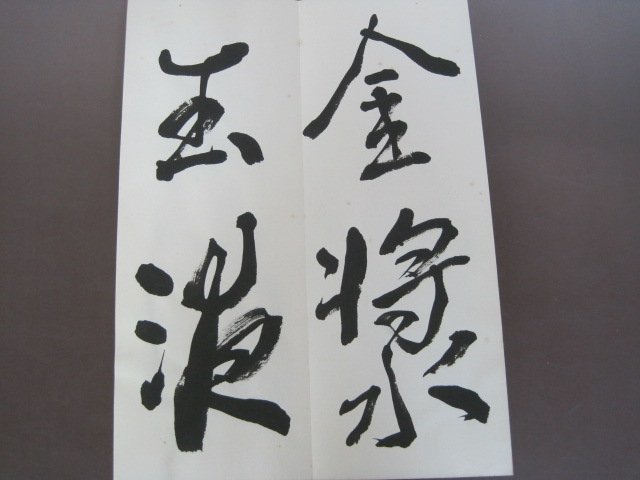 金漿
玉液